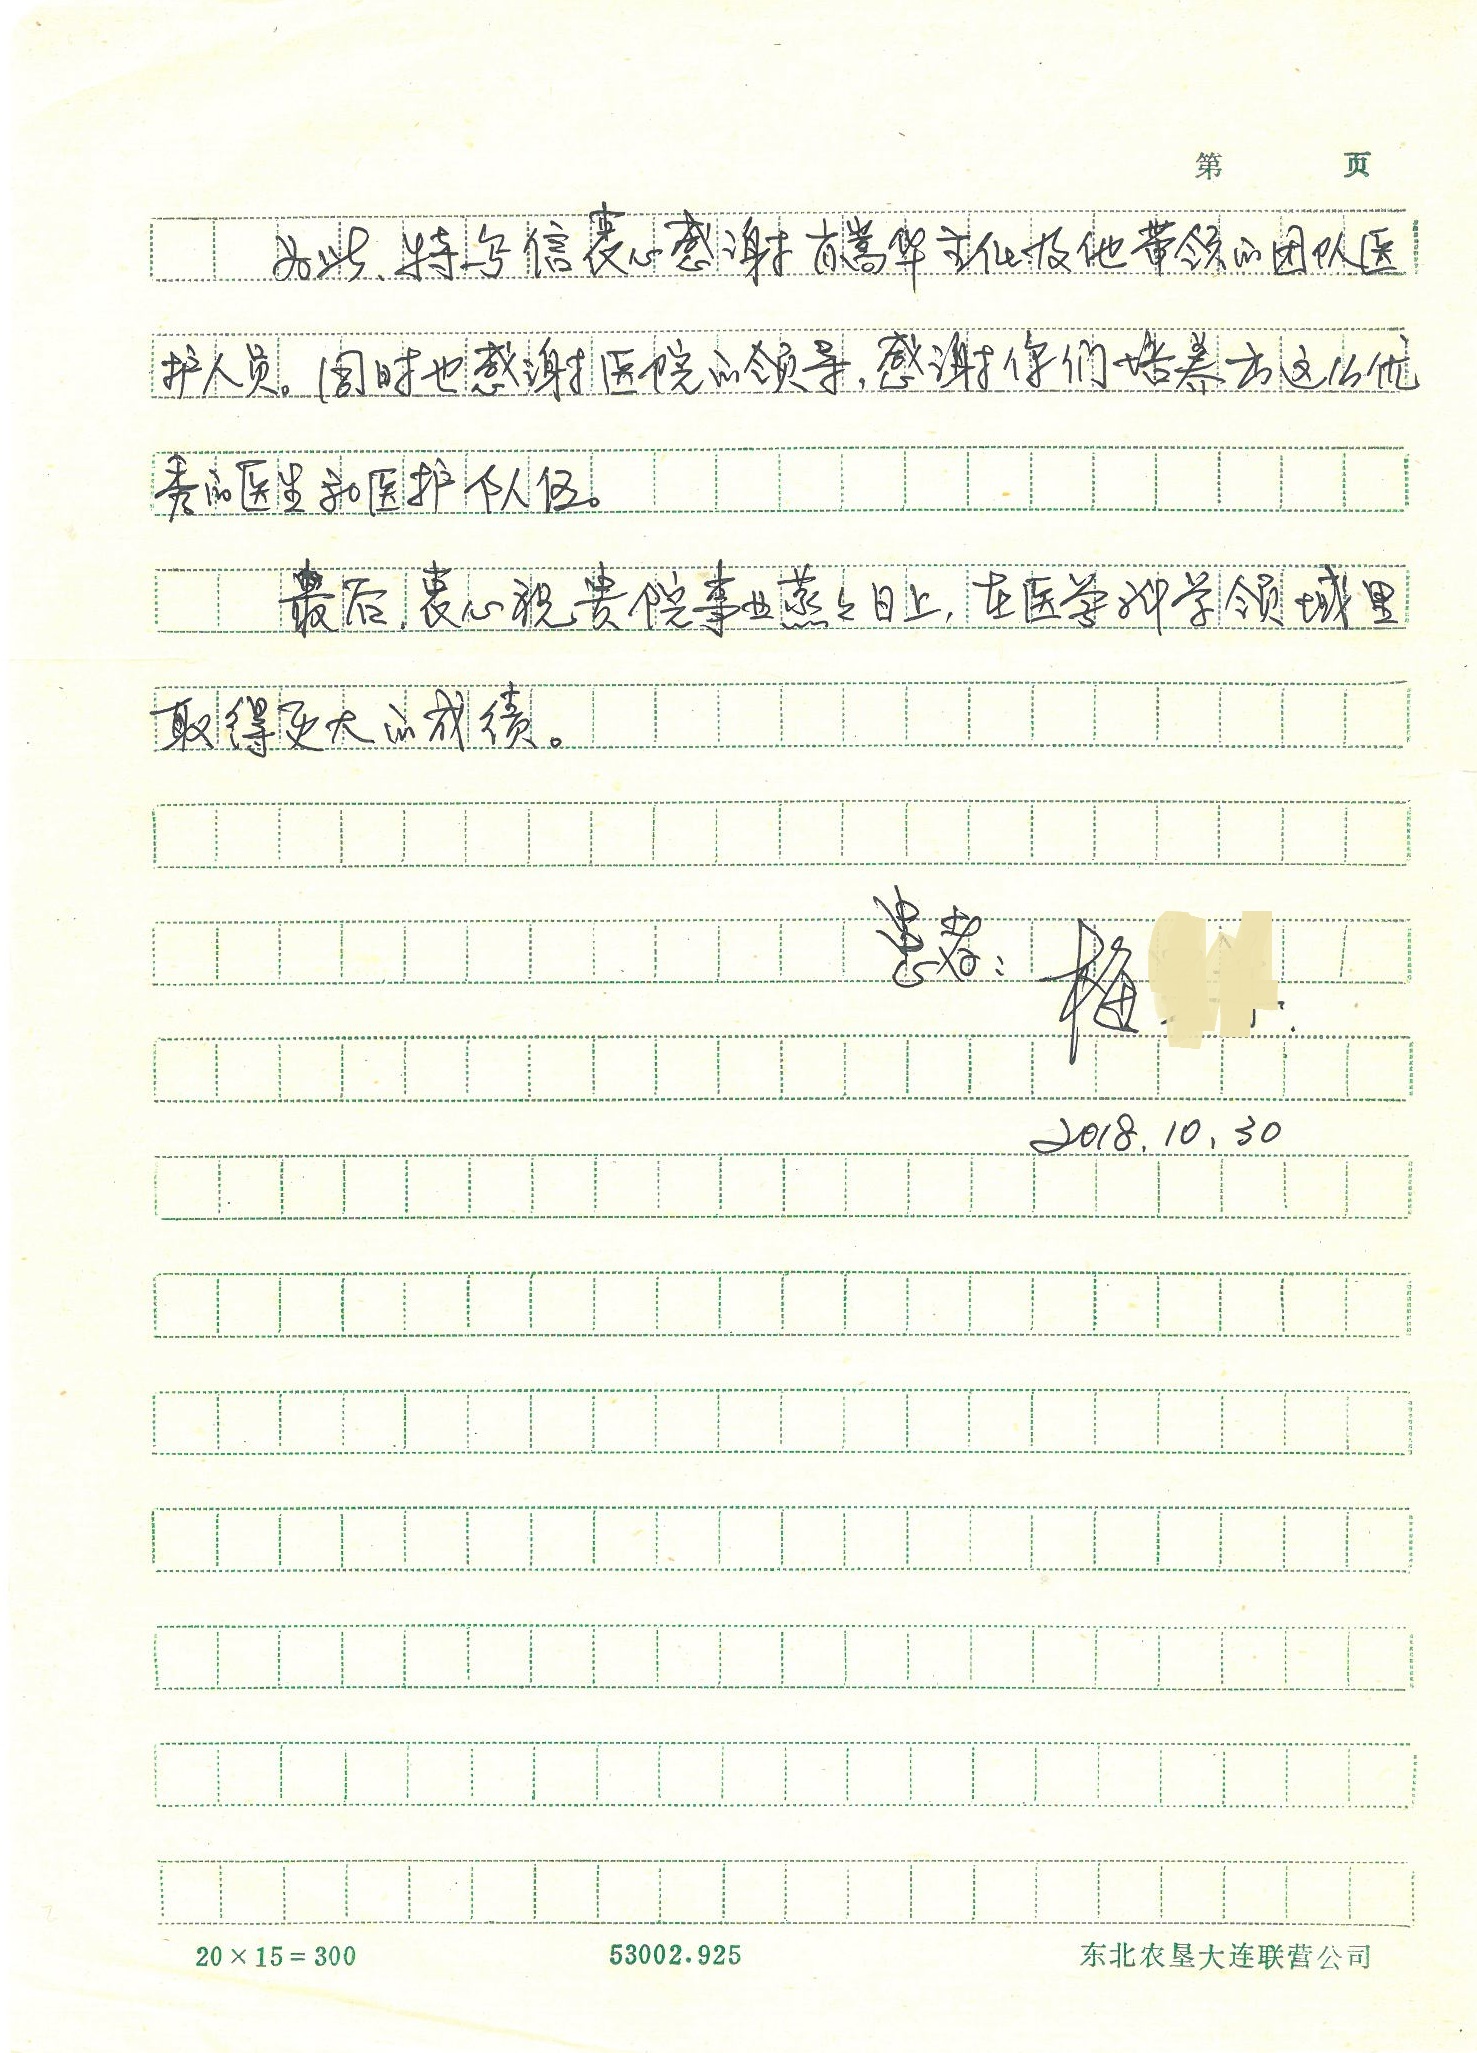 第 页
为此，特写信衷心感谢肖嵩华主任及他带领的团队医
护人员。同时也感谢医院的领导，感谢你们培养出这么优
秀的医生和医护队伍。
最后，衷心祝贵院事业蒸々日上，在医学科学领域里
取得更大的成绩。
患者：
2018.10.30
20×15=300 53002.925 东北农垦大连联营公司